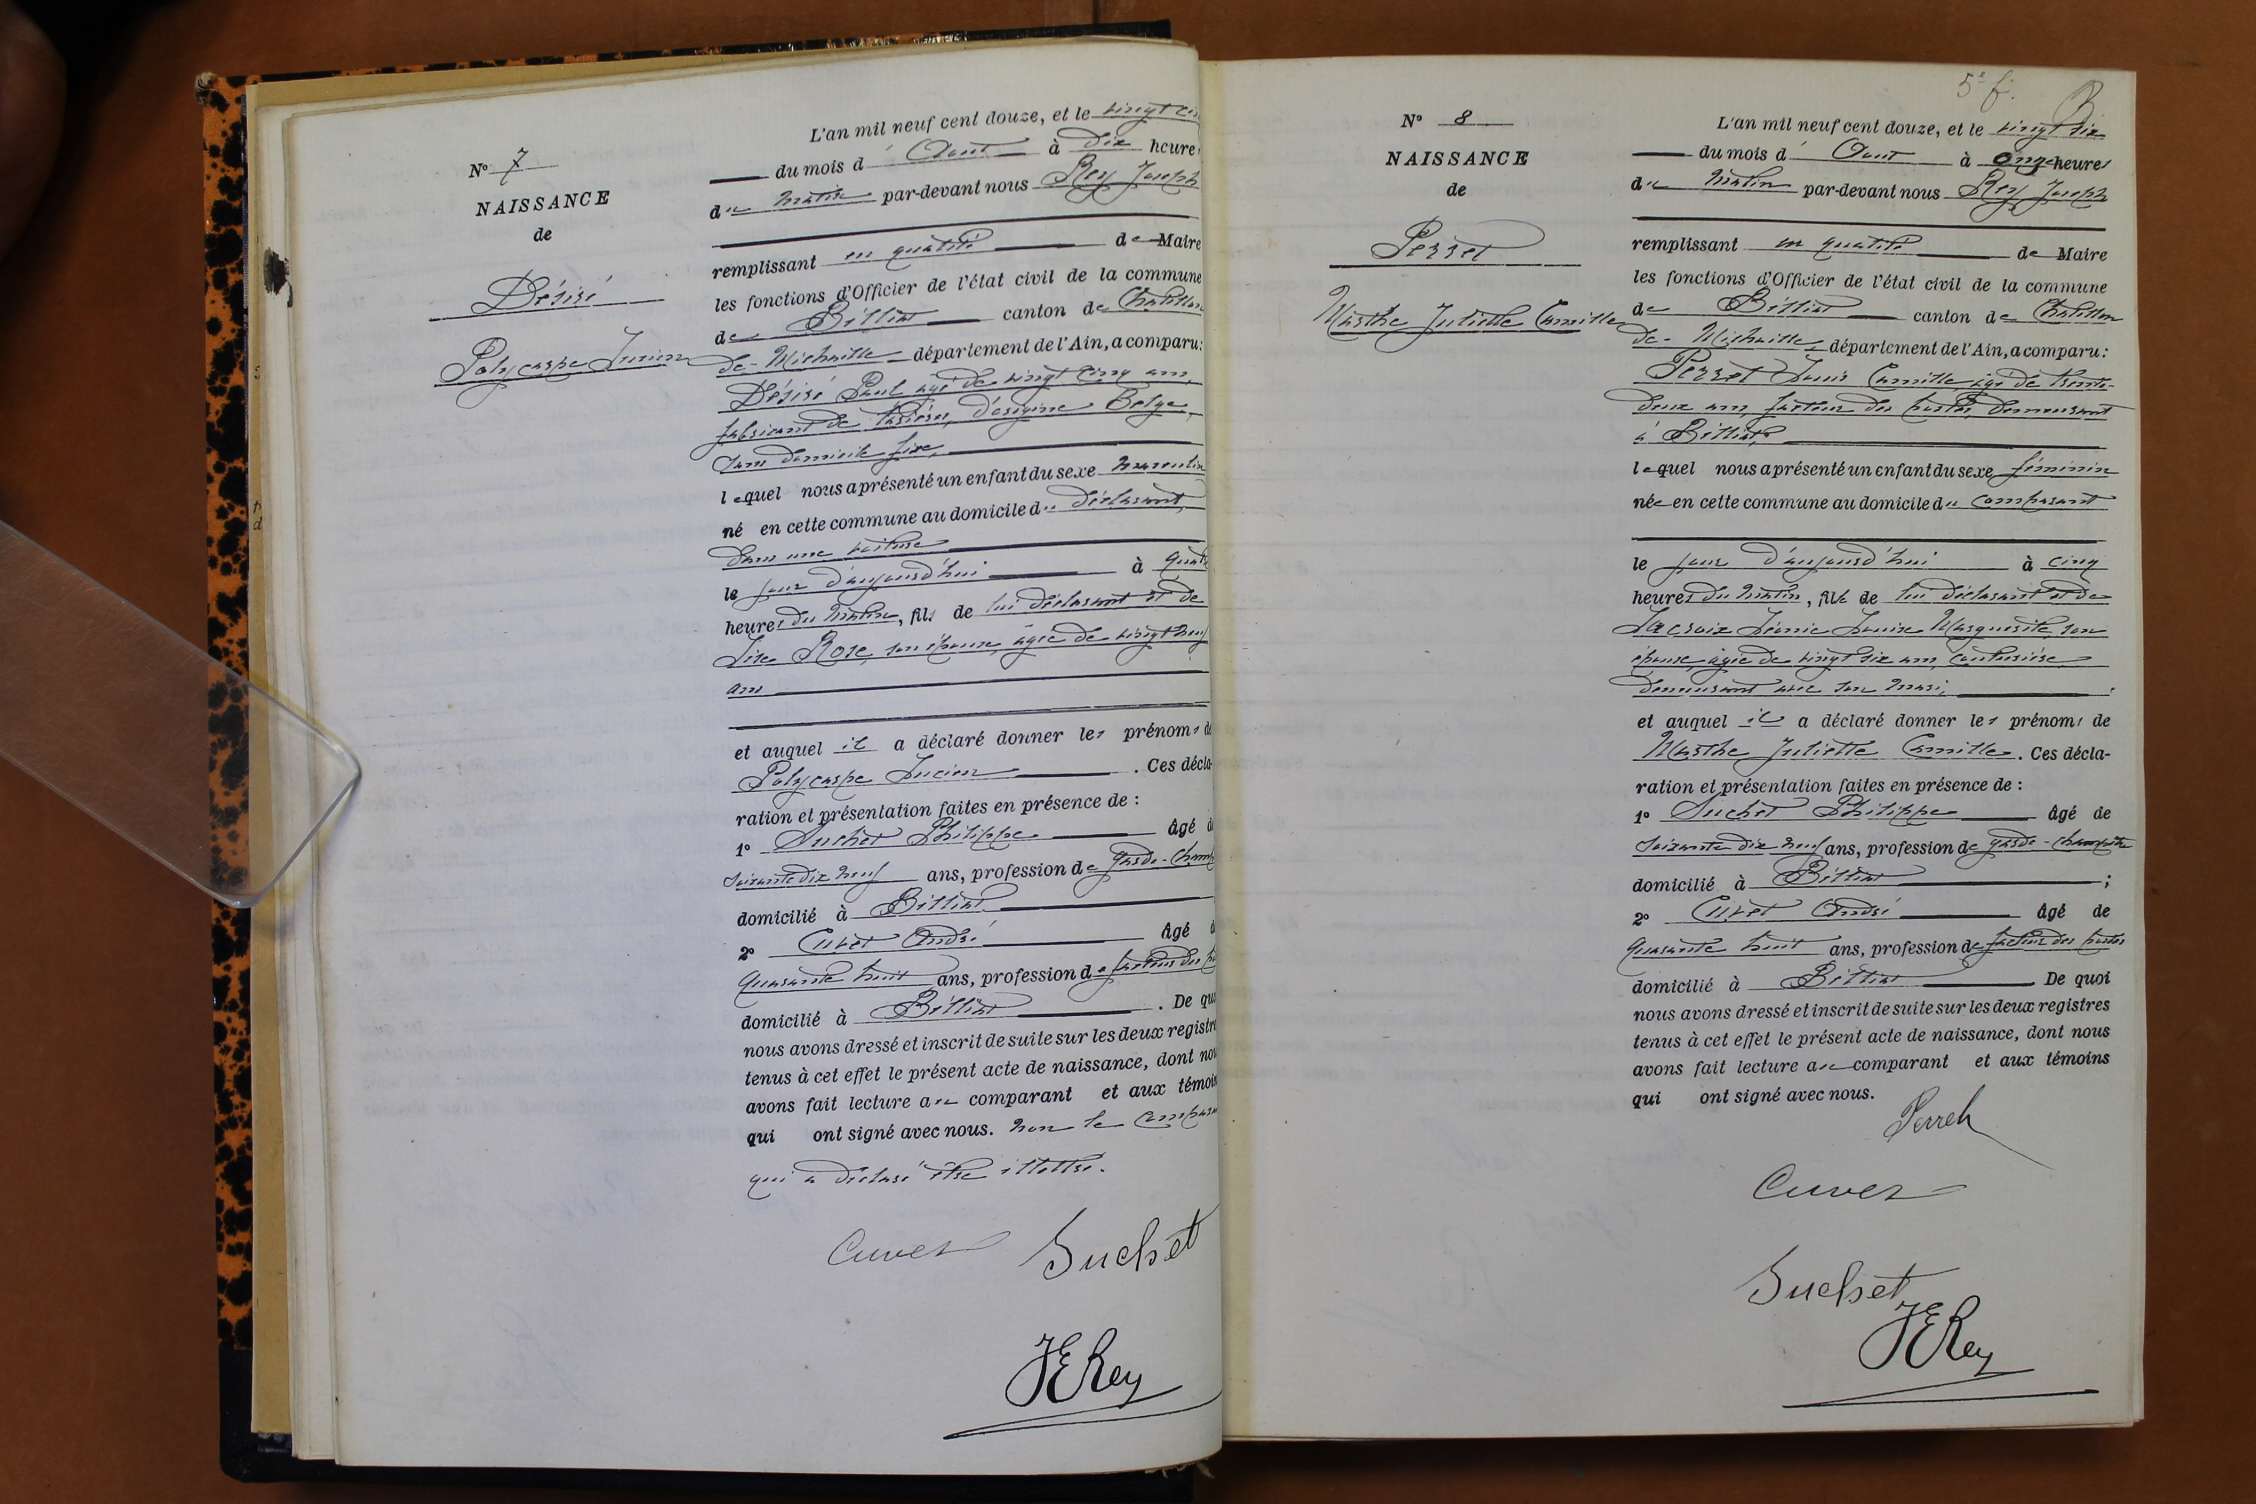 N° 7
NAISSANCE
de
Désiré
Polycarpe Lucien
L'an mil neuf cent douze, et le vingt cin
du mois d' Aout à dix heures
du matin par-devant nous Rey Joseph
remplissant en qualité de Maire
les fonctions d'Officier de l'état civil de la commune
de Billiat canton de Chatillon
de-Michaille département de l'Ain, a comparu:
Désiré Paul agé de vingt cinq ans,
fabricant de paniers, d'origine Belge,
sans domicile fixe,
lequel nous a présenté un enfant du sexe masculin
né en cette commune au domicile du déclarant,
dans une voiture
le jour d'aujourd'hui à quatre
heures du matin, fils de lui déclarant et de
Rose, son épouse, âgée de vingt neuf
ans
et auquel il a déclaré donner les prénoms de
Polycarpe Lucien . Ces décla-
ration et présentation faites en présence de :
1° Suchet Philippe âgé de
soixante dix neuf ans, profession de garde-champ
domicilié à Billiat
2° Cuvet André âgé d
quarante huit ans, profession de facteur des po
domicilié à Billiat . De quoi
nous avons dressé et inscrit de suite sur les deux registre
tenus à cet effet le présent acte de naissance, dont nou
avons fait lecture au comparant et aux témoin
qui ont signé avec nous. non le comparan
qui a déclaré être illettré.
Cuvet Suchet
JERey
5e f.
N° 8
NAISSANCE
de
Perret
Marthe Juliette Camille
L'an mil neuf cent douze, et le vingt six
du mois d' Aout à onze heures
du matin par-devant nous Rey Joseph
remplissant en qualité de Maire
les fonctions d'Officier de l'état civil de la commune
de Billiat canton de Chatillon
de-Michaille, département de l'Ain, a comparu:
Perret Louis Camille, agé de trente-
deux ans, facteur des postes, demeurant
à Billiat,
lequel nous a présenté un enfant du sexe féminin
née en cette commune au domicile du comparant
le jour d'aujourd'hui à cinq
heures du matin, fille de lui déclarant et de
Lacroix Léonie Louise Marguerite, son
épouse, âgée de vingt six ans, couturière,
demeurant avec son mari,
et auquel il a déclaré donner les prénoms de
Marthe Juliette Camille. Ces décla-
ration et présentation faites en présence de :
1° Suchet Philippe âgé de
soixante dix neuf ans, profession de garde-champêtre
domicilié à Billiat ;
2° Cuvet André âgé de
quarante huit ans, profession de facteur des postes
domicilié à Billiat De quoi
nous avons dressé et inscrit de suite sur les deux registres
tenus à cet effet le présent acte de naissance, dont nous
avons fait lecture au comparant et aux témoins
qui ont signé avec nous.
Perret
Cuvet
Suchet
JERey